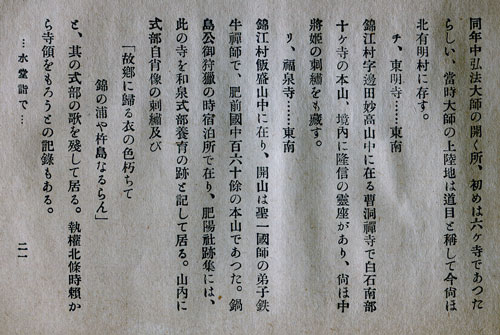 同年中弘法大師の開く所、初めは六ヶ寺であつた
らしい、當時大師の上陸地は道目と稱して今尙ほ
北有明村に存す。
チ、東明寺……東南
錦江村字邊田妙高山中に在る曹洞禪寺で白石南部
十ヶ寺の本山、境内に隆信の靈座があり、尙ほ中
將姬の刺繡をも藏す。
リ、福泉寺……東南
錦江村飯盛山中に在り、開山は聖一國師の弟子鉄
牛禪師で、肥前國中百六十餘の本山であつた。鍋
島公御狩獵の時宿泊所で在り、肥陽社跡集には、
此の寺を和泉式部養育の跡と記して居る。山内に
式部自肖像の刺繡及び
「故鄕に歸る衣の色朽ちて
錦の浦や杵島なるらん」
と、其の式部の歌を殘して居る。執權北條時賴か
ら寺領をもろうとの記錄もある。
…水堂詣で…
二一